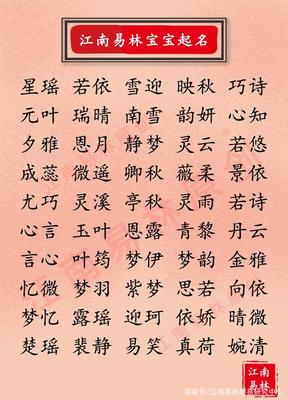 江南易林宝宝起名
星瑶 若依 雪迎 映秋 巧诗
元叶 瑞晴 南雪 韵妍 心知
夕雅 恩月 静梦 灵云 若悠
成蕊 微遥 卿秋 薇柔 景依
尤巧 灵溪 亭秋 灵雨 若诗
心言 玉叶 恩露 青黎 丹云
言心 叶筠 梦伊 梦韵 金雅
忆微 梦羽 紫梦 思若 向依
梦忆 露瑶 迎珂 依娇 晴微
楚瑶 裴静 易笑 真荷 婉清
江南
易林